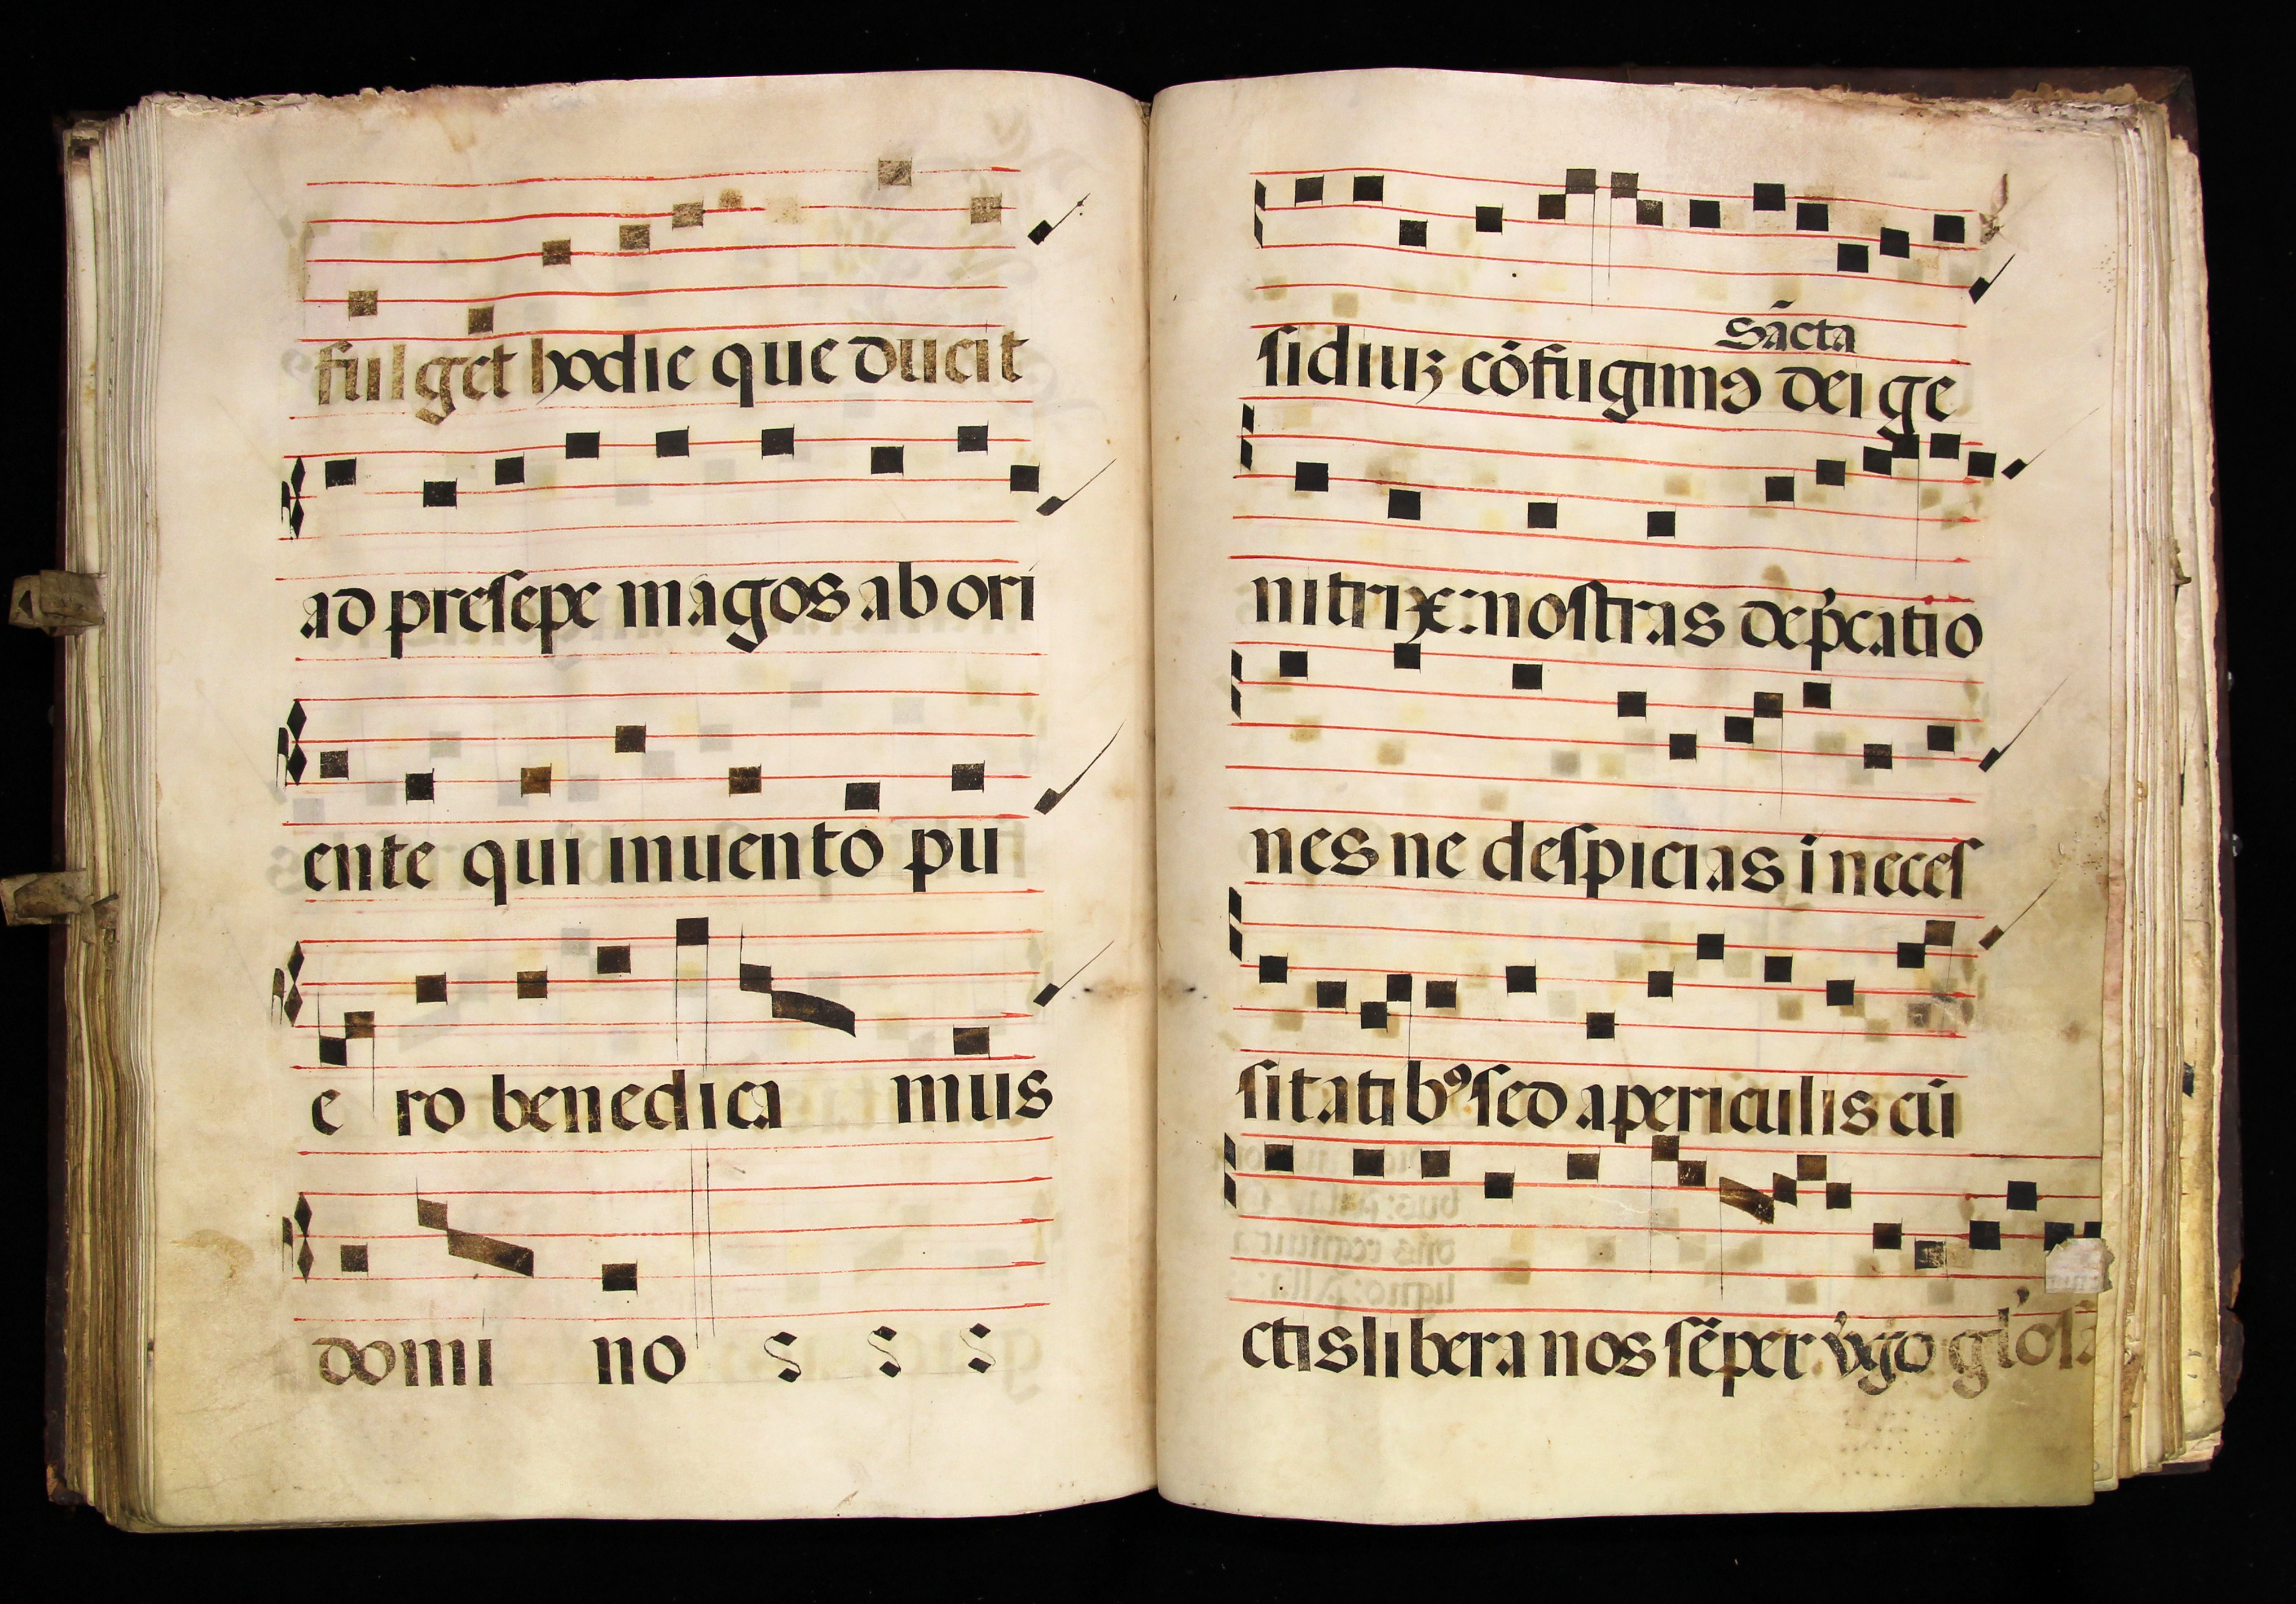 fulget hodie que ducit
ad presepe magos ab ori
ente qui inuento pu
e ro benedica mus
domi no
Sācta
sidiuꝫ cōfugimꝯ dei ge
nitrix: nostras dep̄catio
nes ne despicias i neces
sitatibꝰ sed apericulis cū
ctis libera nos sēper v̓go